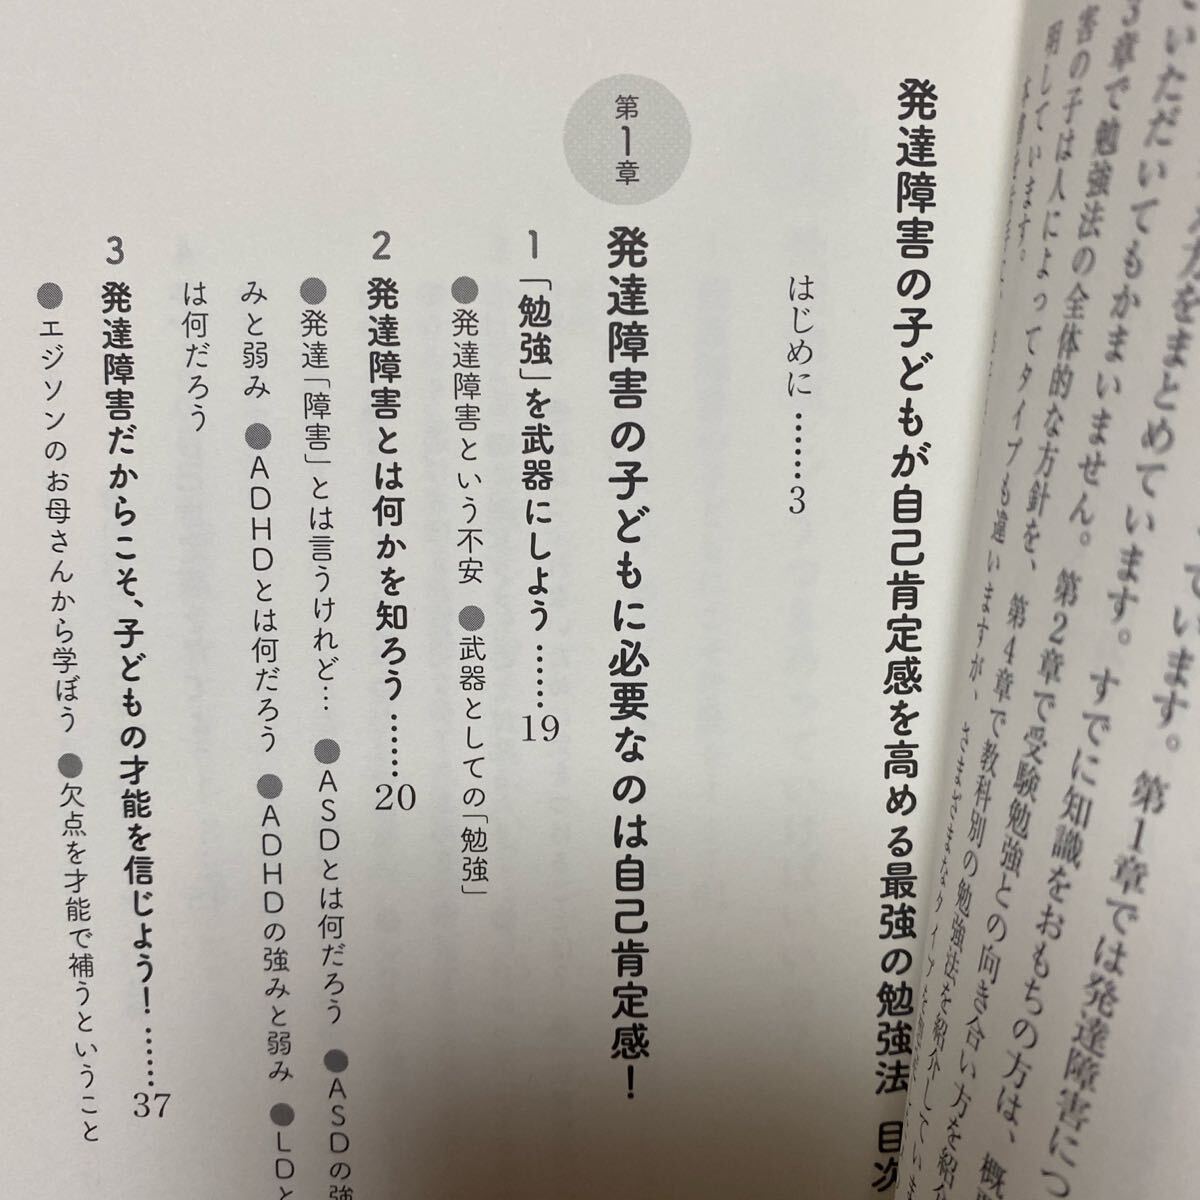 いただいてもかまいません。すでに知識をおもちの方は、概
3章で勉強法の全体的な方針を、第4章で教科別の勉強法を紹介してい
害の子は人によってタイプも違いますが、さまざまな
明しています。
発達障害の子どもが自己肯定感を高める最強の勉強法 目次
はじめに……3
第1章
発達障害の子どもに必要なのは自己肯定感！
1 「勉強」を武器にしよう……19
●発達障害という不安 ●武器としての「勉強」
2 発達障害とは何かを知ろう……20
●発達「障害」とは言うけれど… ●ASDとは何だろう ●ASDの強
みと弱み ●ADHDとは何だろう ●ADHDの強みと弱み ●LDと
は何だろう
3 発達障害だからこそ、子どもの才能を信じよう！……37
●エジソンのお母さんから学ぼう ●欠点を才能で補うということ